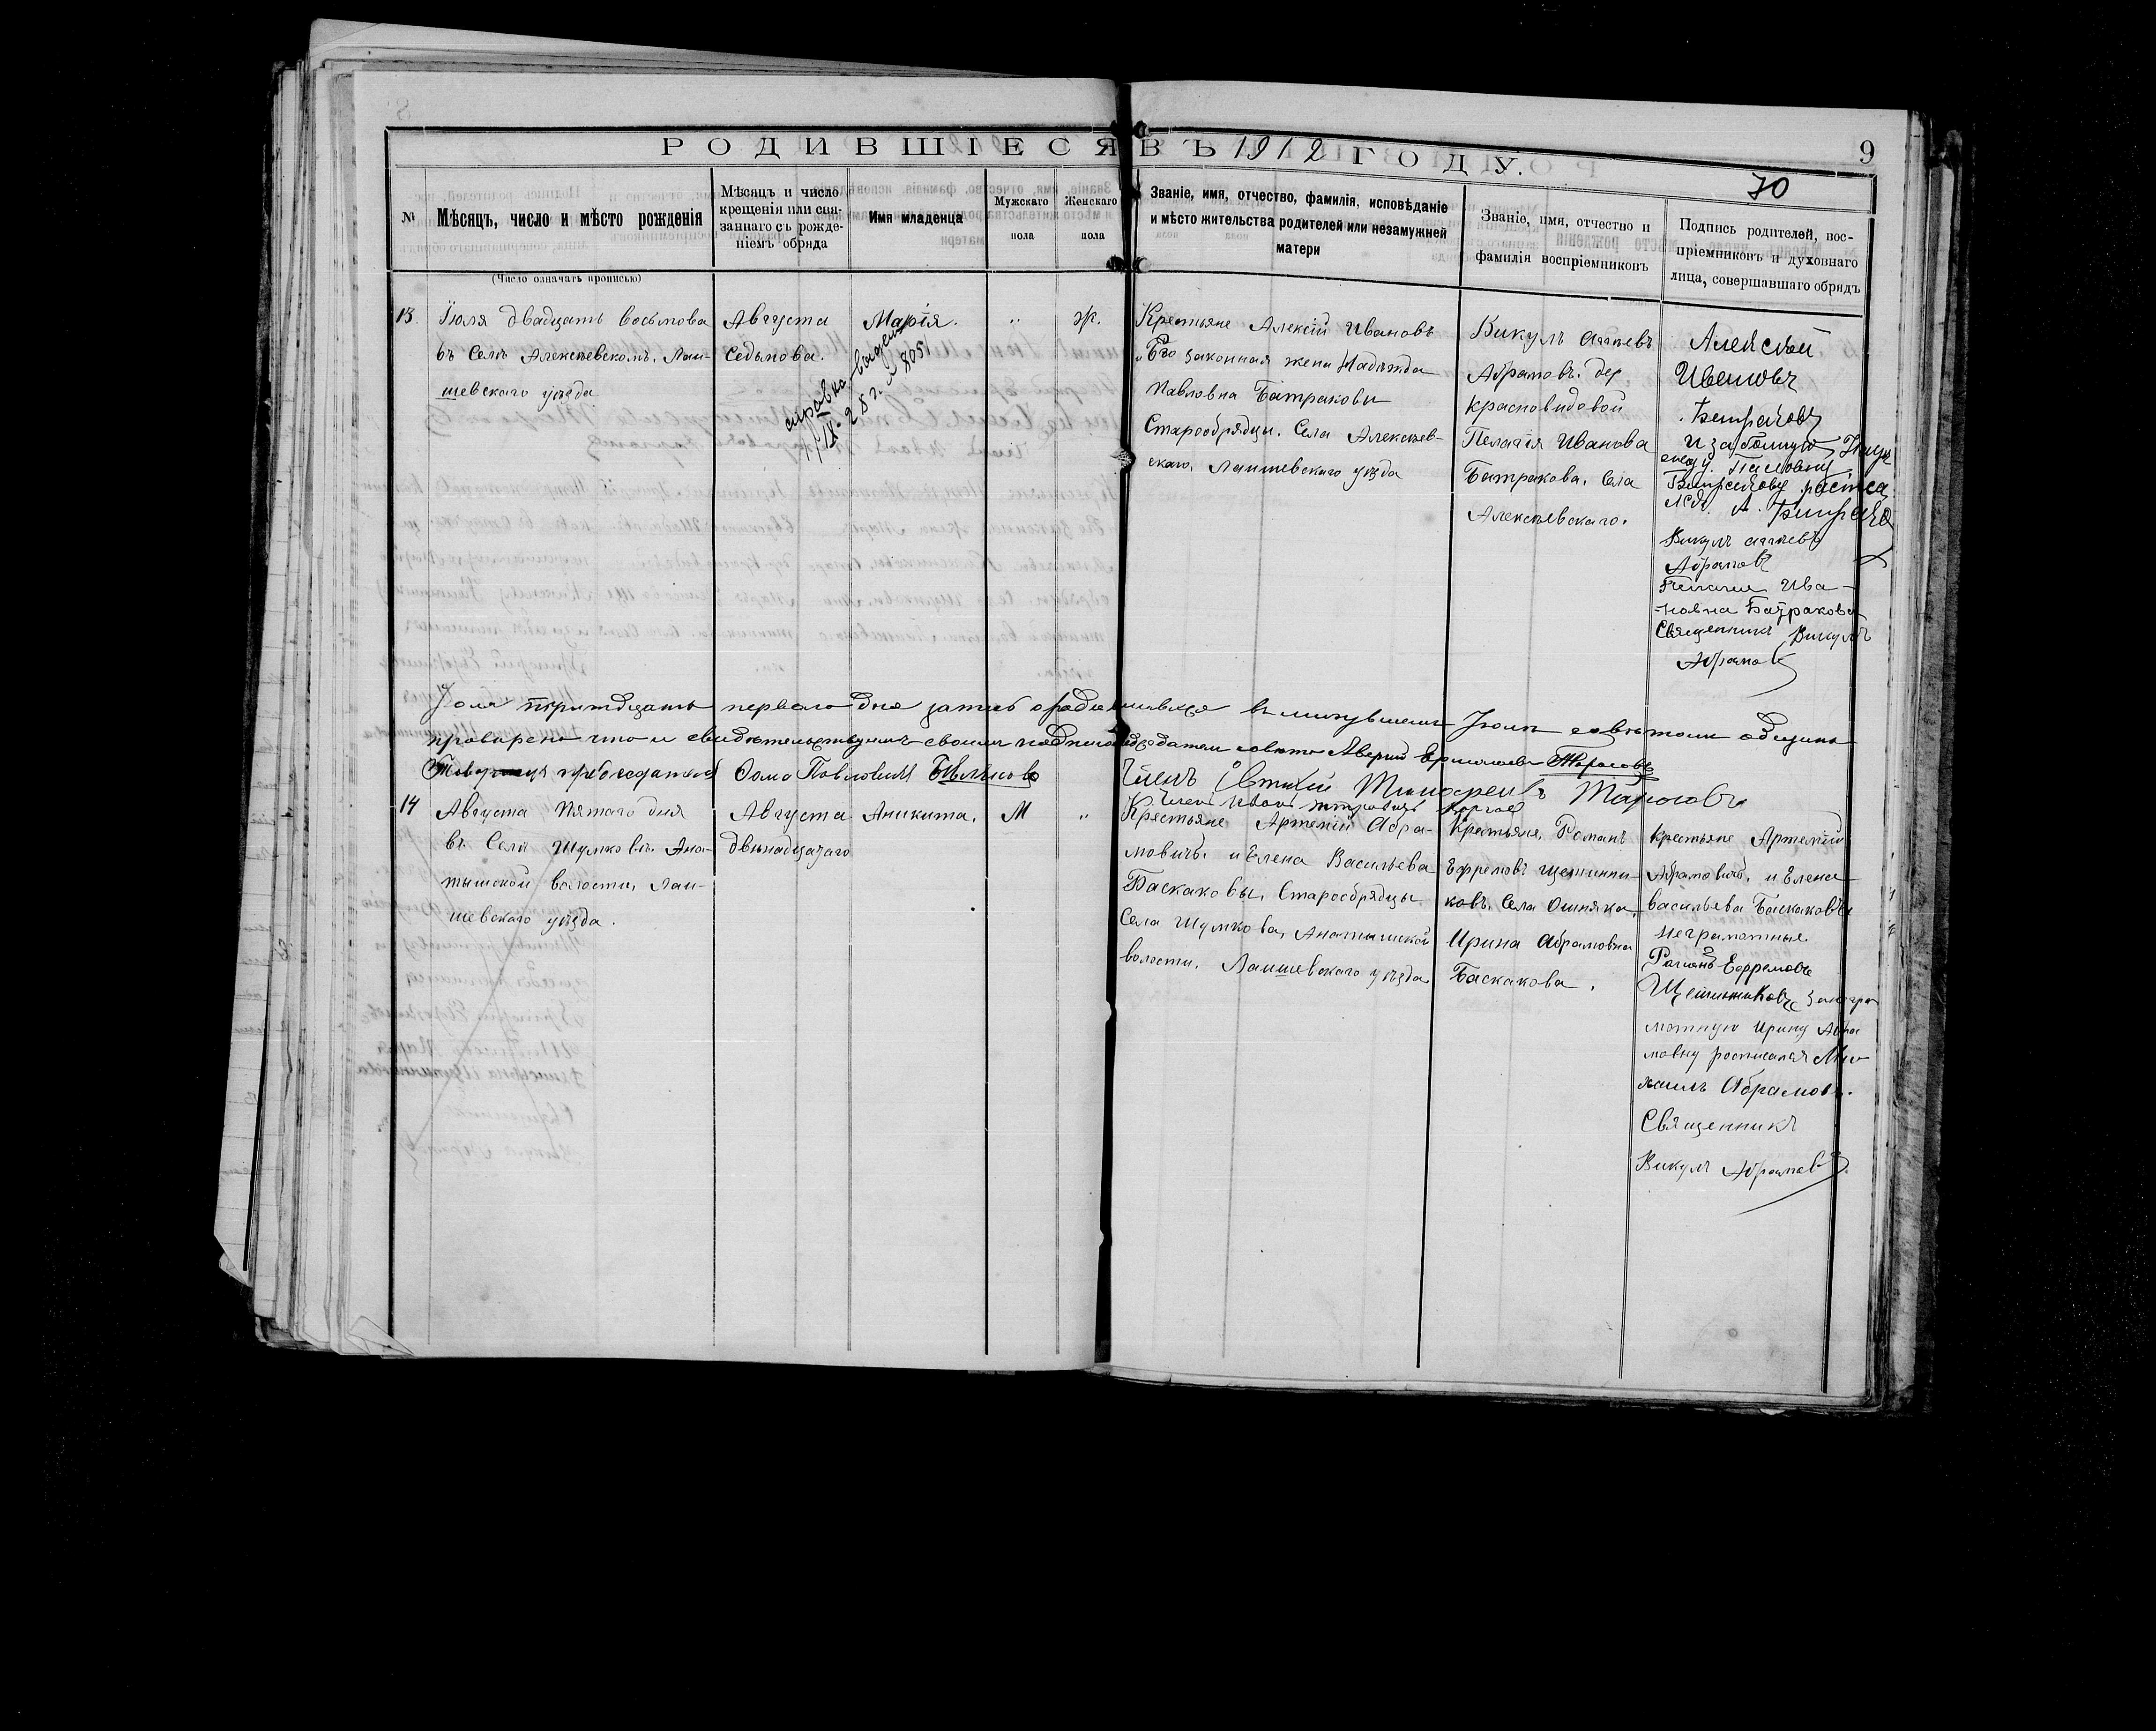 РОДИВШІЕСЯ ВЪ 1912 ГОДУ.
9
70
№
Мѣсяцъ, число и мѣсто рожденія
(Число означать прописью)
Мѣсяцъ и число
крещенія или свя-
заннаго съ рожде-
ніемъ обряда
Имя младенца
Мужскаго
пола
Женскаго
пола
Званіе, имя, отчество, фамилія, исповѣданіе
и мѣсто жительства родителей или незамужней
матери
Званіе, имя, отчество и
фамилія воспріемниковъ
Подпись родителей, вос-
пріемниковъ и духовнаго
лица, совершавшаго обрядъ
13.
Іюля двадцать восьмова
въ Селѣ Алексѣевскомъ. Лаи-
шевскаго уѣзда
Августа
Седьмова.
Марія.
справка выдана
IX-28 г. № 805
"
ж.
Крестьяне Алексій Ивановъ
и Его законная жена Надѣжда
Павловна Батраковы
Старообрядцы. Села Алексѣев-
скаго, Лаишевскаго уѣзда
Викулъ
Абрамовъ. дер
Красновидовой
Пелагія Иванова
Батракова. Села
Алексѣевскаго.
Алексѣй
Ивановъ
Батраковъ
и за
Павловну
Батракову
А. Батраковъ
Викулъ
Абрамовъ
Пелагия Ива-
-новна Батракова
Священникъ Викулъ
Абрамовъ
Іюля тритдцать первого дня запись о родившихся въ минувшемъ Іюлѣ совѣтомъ общины
проверено что и свидѣтельствуемъ своимъ подписом предсѣдатель совѣта Аверий Ермолаевъ Тарасовъ
Товарищъ предсѣдателя Фома Павловичъ Бѣляковъ
Членъ Евтихій Тимофеевъ Тарасовъ
Членъ Иванъ Петровичъ
14
Августа Пятаго дня
въ Селѣ Шумковѣ. Ана-
тышской волости, Лаи-
шевскаго уѣзда.
Августа
двѣнадцатаго
Аникита.
М
"
Крестьяне Артемій Абра-
мовичъ. и Елена Васильева
Баскаковы, Старообрядцы
Села Шумкова, Анатышской
волости. Лаишевскаго уѣзда
Крестьяне, Романъ
Ефремовъ Щетинни-
ковъ, Села Ошняка,
Ирина Абрамовна
Баскакова.
крестьяне Артемій
Абрамовичъ. и Елена
Васильева Баскаковы
неграмотные
Романъ Ефремовъ
Щетинниковъ, за негра
мотную Ирину Абра
мовну росписался Ми-
хаилъ Абрамовъ.
Священникъ
Викулъ Абрамовъ.